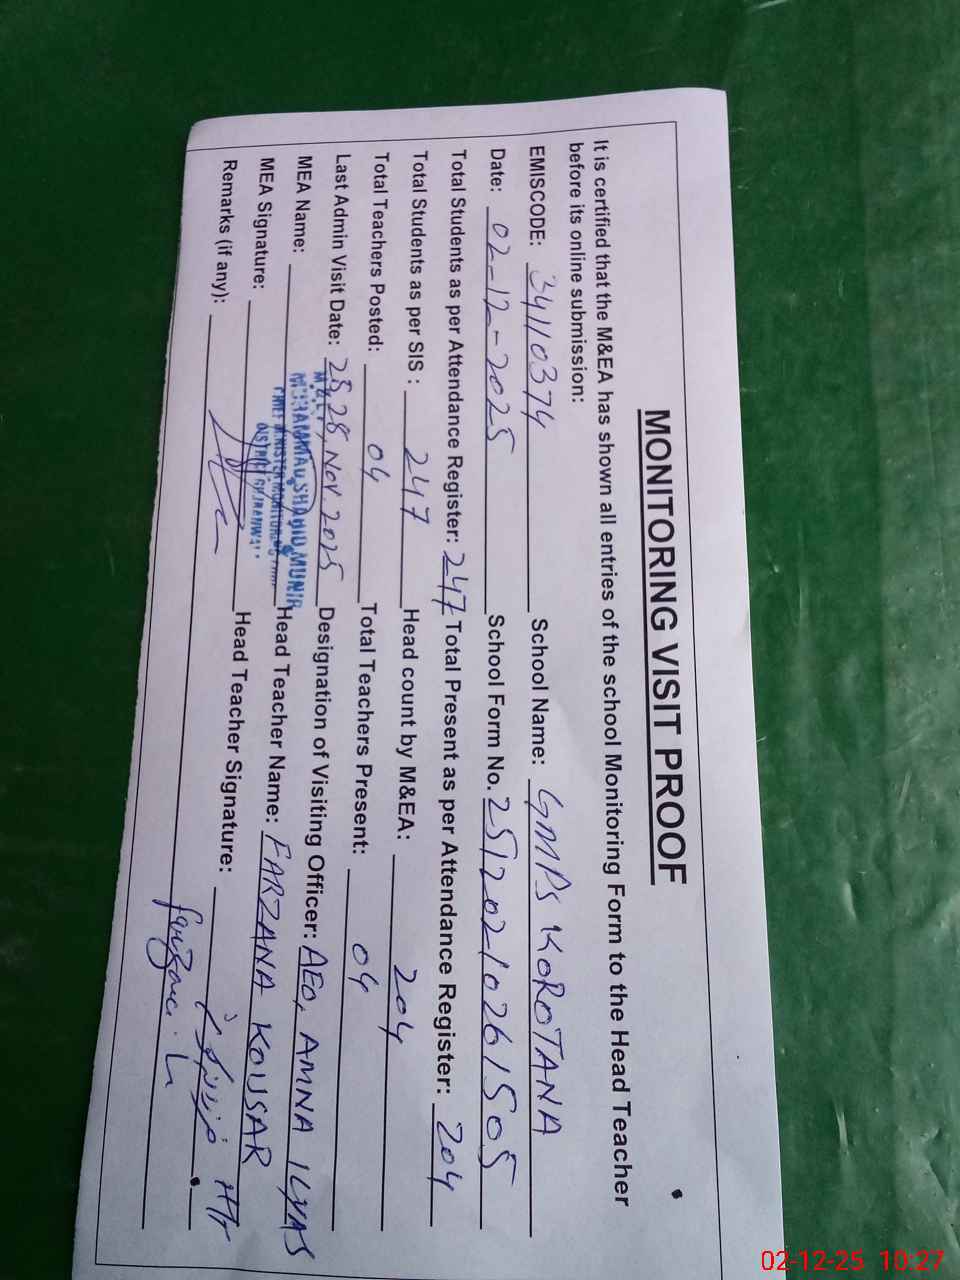 MONITORING VISIT PROOF
It is certified that the M&EA has shown all entries of the school Monitoring Form to the Head Teacher
before its online submission:
EMISCODE: 34110374 School Name: GMPS KOROTANA
Date: 02-12-2025 School Form No. 25120210261505
Total Students as per Attendance Register: 247 Total Present as per Attendance Register: 204
Total Students as per SIS : 247 Head count by M&EA: 204
Total Teachers Posted: 04 Total Teachers Present: 04
Last Admin Visit Date: 28 Nov. 2025 Designation of Visiting Officer: AEO, AMNA ILYAS
MEA Name: MUHAMMAD SHAHID MUNIR Head Teacher Name: FARZANA KOUSAR
MEA Signature: Head Teacher Signature:
Remarks (if any):
02-12-25 10:27